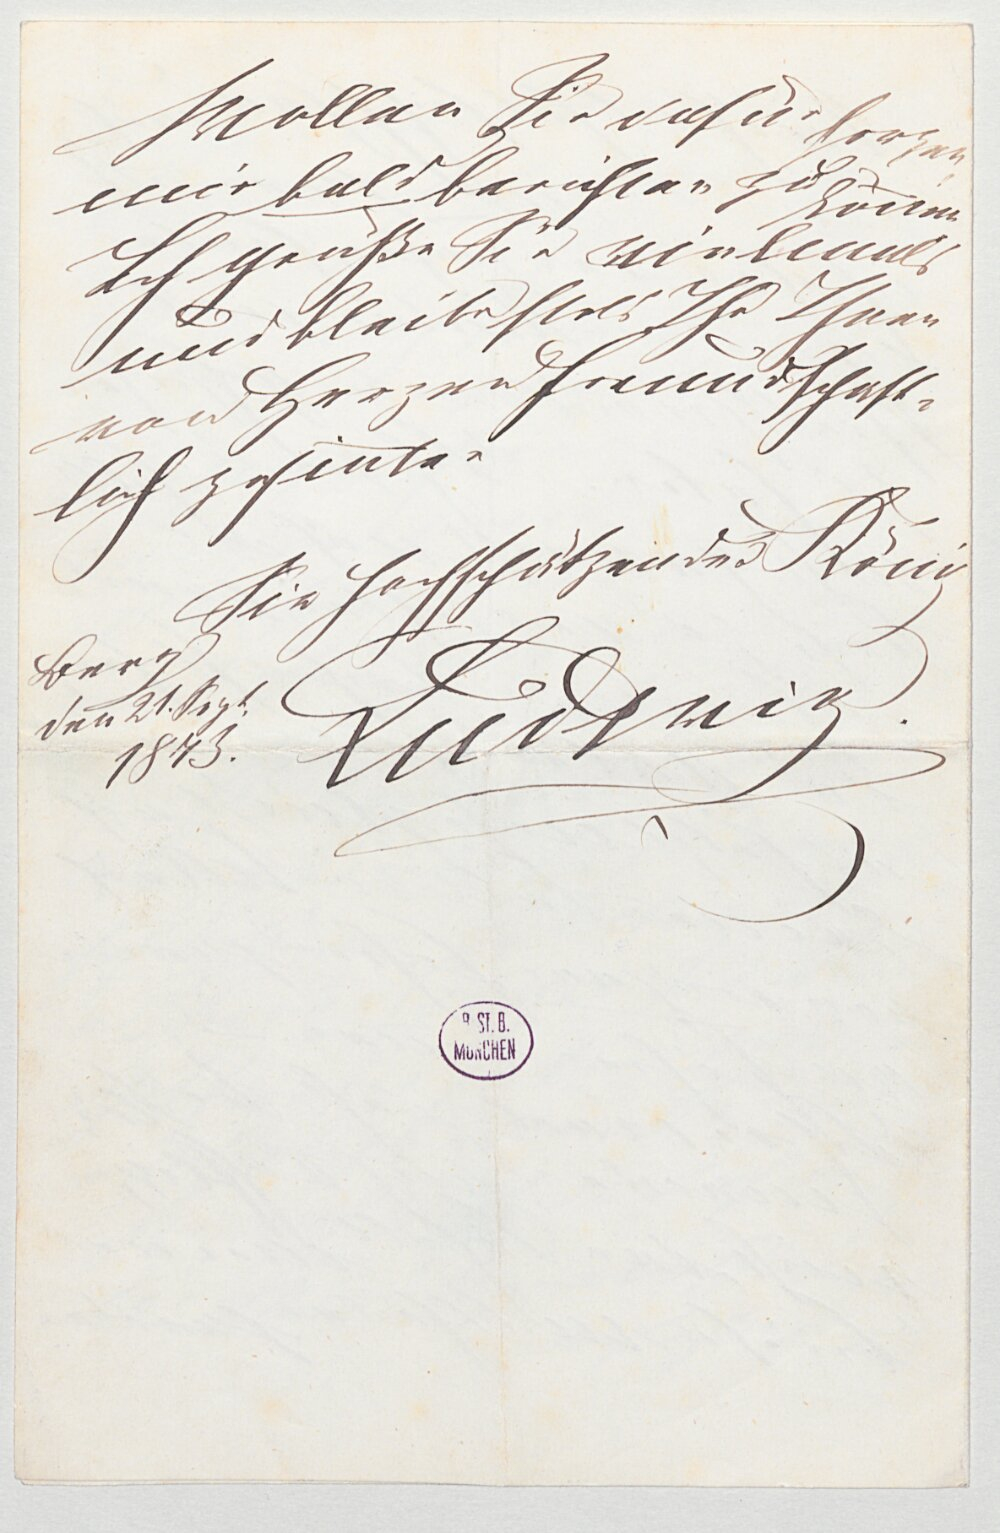 Wollen Sie dafür sorgen
mir bald berichten zu können
Ich grüße Sie vielmals
und bleibe stets Ihr Ihnen
von Herzen freundschaft-
lich gesinnter
Sie hochschätzender König
Ludwig.
Berg
den 21. Sept.
1873.
B. ST. B.
MÜNCHEN